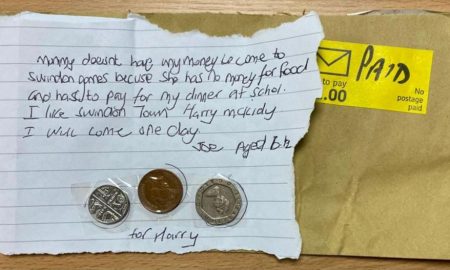 mummy doesnt have my money to come to
swindon games becuse she has no money for food
and has to pay for my dinner at schol.
I like swindon Town Harry mckirdy
I will come one day.
Joe Aged 6 ½
for Harry
PAID
to pay
.00
No
postage
paid